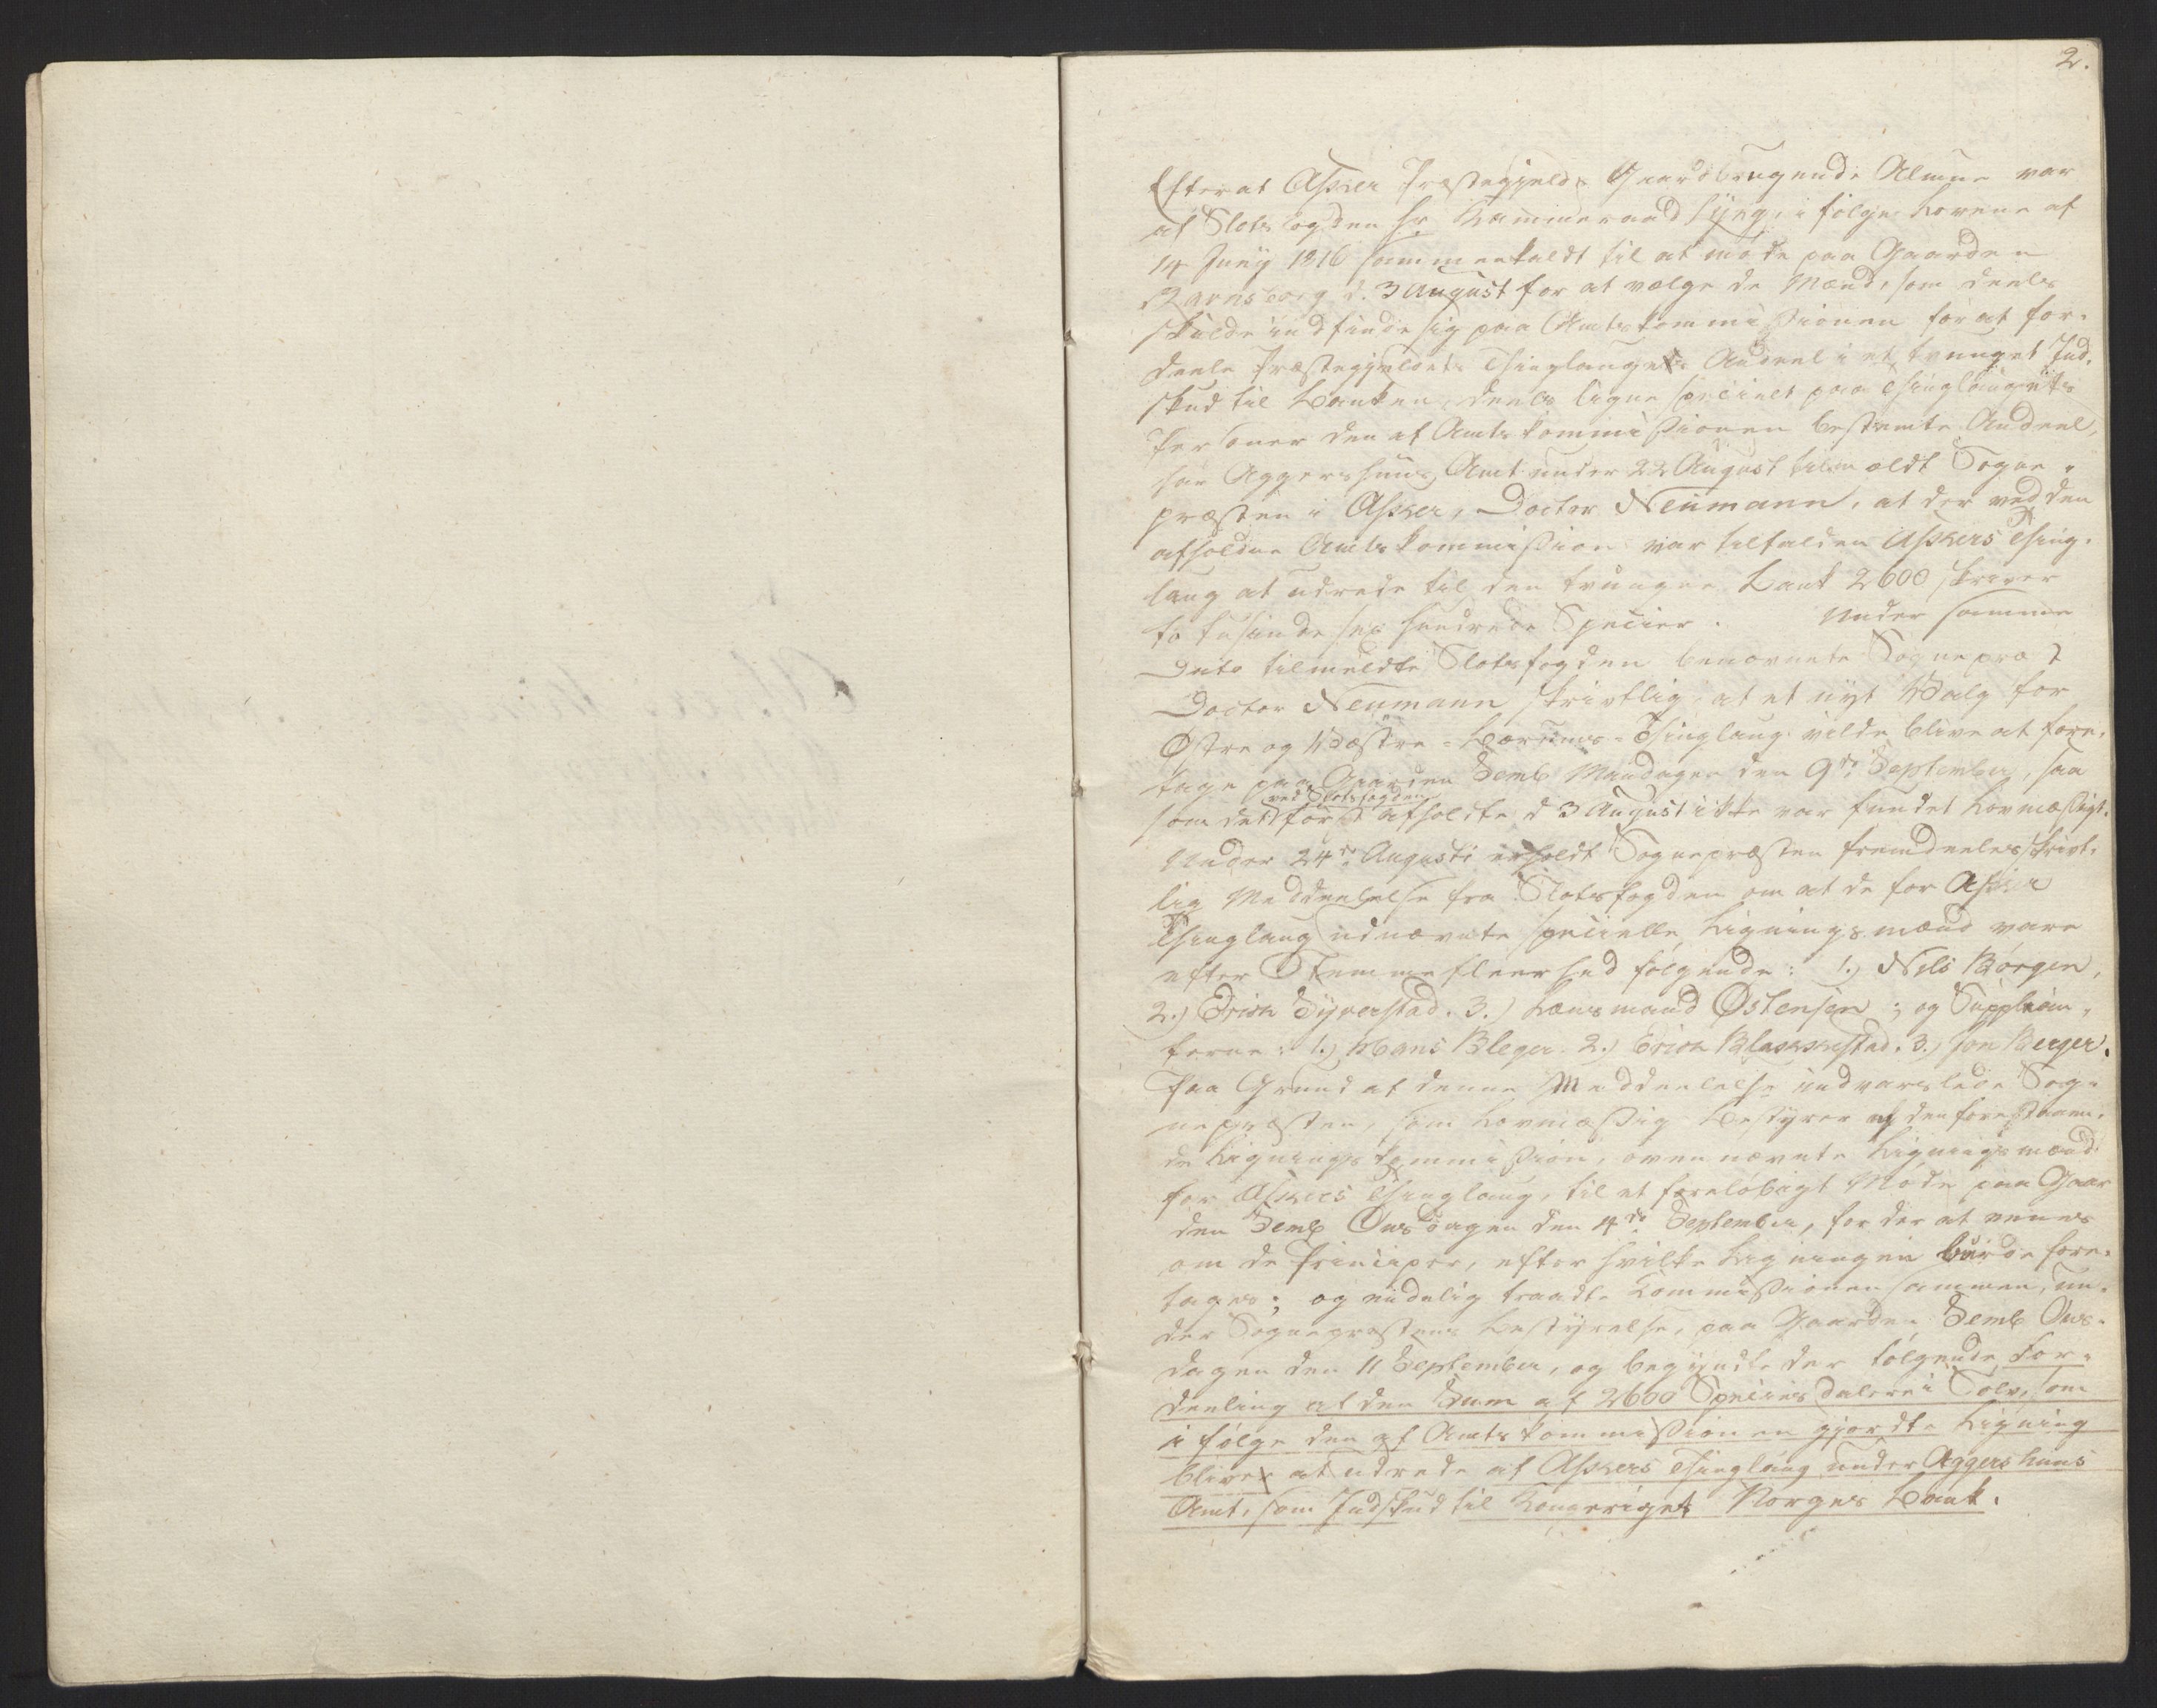 2.
Efterat Asker Præstegjelds Gaardbrugende Almue var
af Slotsfogden Hr Kammeraad Lyng, i følge Lovene af
14 Juny 1816 sammenkaldt til at møde paa Gaarden
Ravnsborg d. 3 August for at vælge de Mænd, som deels
skulde indfinde sig paa Amtskommissionen for at for-
deele Præstegjeldets Thinglaugets Andeel i et tvunget Ind-
skud til Banken, deels ligne specielt paa Thinglaugets
Personer den af Amtskommissionen bestemte Andeel,
har Aggershuus Amt under 22 August tilmeldt Sogne-
præsten i Asker, Doctor Neumann, at der ved den
afholdne Amtskommission var tilfalden Askers Thing-
laug at udrede til den tvungne Bank 2600 skriver
to tusinde sex hundrede Specier. Under samme
Dato tilmeldte Slotsfogden benævnte Sognepræst
Doctor Neumann skrivtlig, at et nyt Valg for
Østre og Vestre-Bærums-Thinglaug vilde blive at fore-
tage paa Gaarden Semb Mandagen den 9de September, saa
ved Slotsfogden
som det først afholdte d 3 August ikke var fundet Lovmæssigt.
Under 24de Augusti erholdt Sognepræsten fremdeeles skrivt-
lig Meddeelelse fra Slotsfogden om at de for Asker
Thinglaug udnævnte specielle Ligningsmænd vare
efter Stemmefleerhed følgende: 1.) Nils Borgen,
2.) Erich Syverstad. 3.) Lænsmand Østensen; og Supplean-
terne: 1.) Hans Bleger 2.) Erich Blachstad. 3.) Jon Berger.
Paa Grund af denne Meddeelelse indvarslede Sog-
nepræsten, som Lovmæssig Bestyrer af den forestaaen-
de Ligningskommission, ovennævnte Ligningsmænd
for Askers Thinglaug, til et foreløbigt Møde paa Gaar
den Semb Onsdagen den 4de September, for der at enes
om de Principer, efter hvilke Ligningen burde fore-
tages; og endelig traadte Kommissionen sammen, un-
der Sognepræstens Bestyrelse, paa Gaarden Semb Ons-
dagen den 11 September, og begyndte der følgende For-
deeling af den Sum af 2600 Speciesdalere i Sølv, som
i følge den af Amtskommissionen gjordte Ligning
bliver at udrede af Askers Thinglaug under Aggershuus
Amt, som Indskud til Kongeriget Norges Bank.